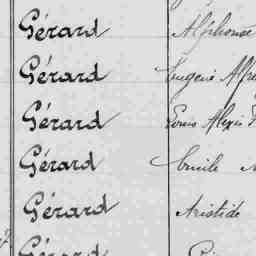 Gérard Alphonse
Gérard Eugène Alfre
Gérard Louis Alexis
Gérard Emile
Gérard Aristide
Gérard